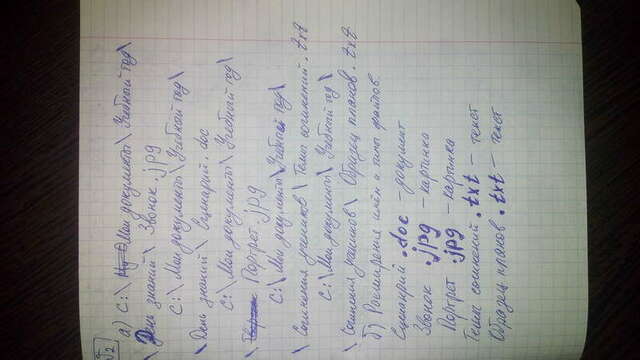 №2
а) C:\ Мои документы\ Учебный год\
\ День знаний\ Звонок.jpg
C:\ Мои документы\ Учебный год\
\ День знаний\ Сценарий.doc
C:\ Мои документы\ Учебный год\
\ Портрет.jpg
C:\ Мои документы\ Учебный год\
\ Сочинения учеников\ Темы сочинений.txt
C:\ Мои документы\ Учебный год\
\ Сочинения учеников\ Образец планов.txt
б) Расширения имён и типы файлов.
Сценарий .doc – документ
Звонок .jpg – картинка
Портрет .jpg – картинка
Темы сочинений .txt – текст
Образец планов .txt – текст